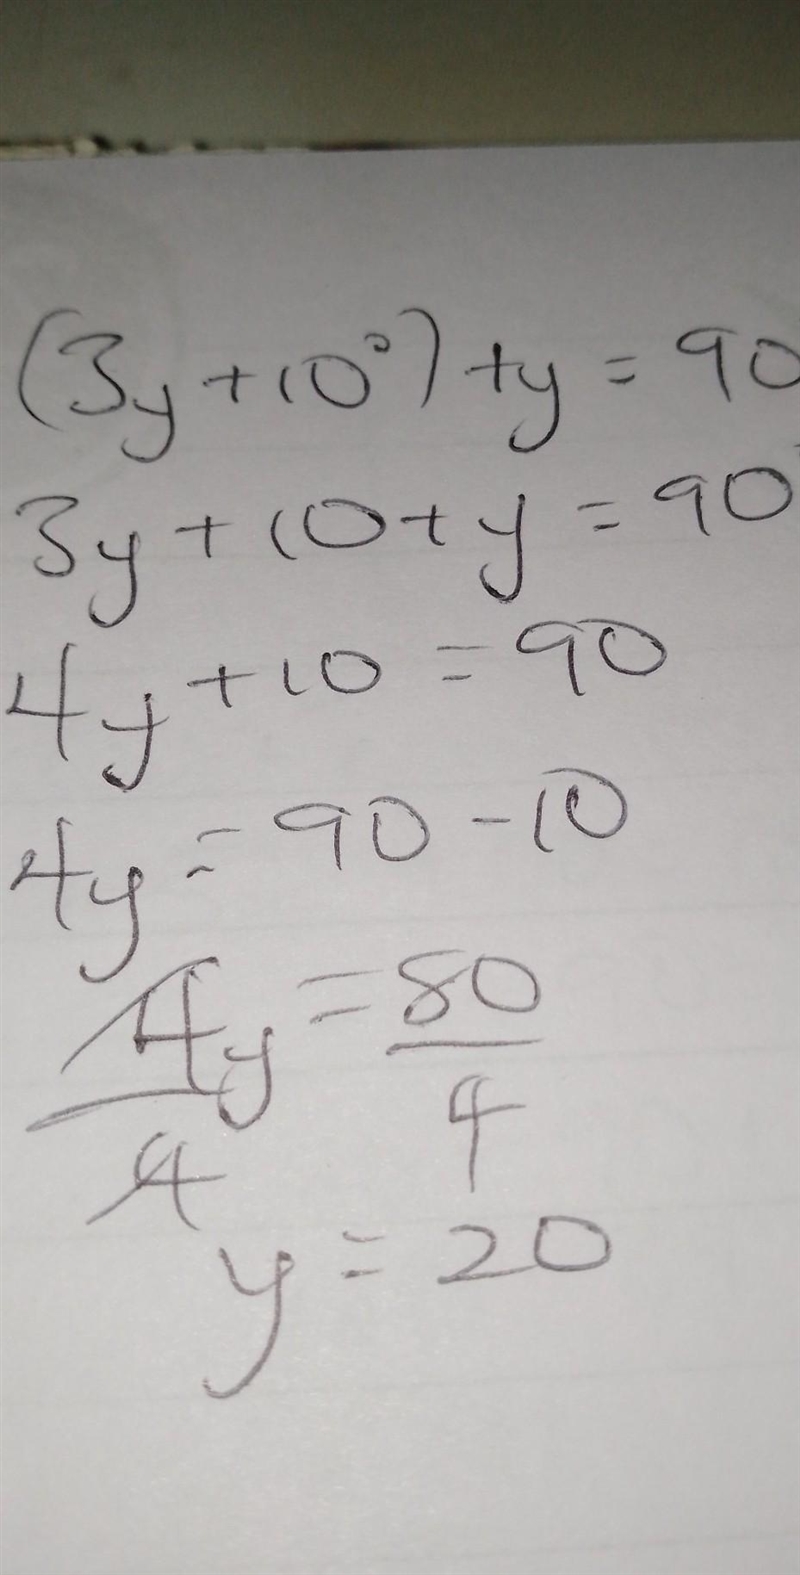 (3y+10°)+y=90
3y+10+y=90°
4y+10=90
4y=90-10
4y/4=80/4
y=20